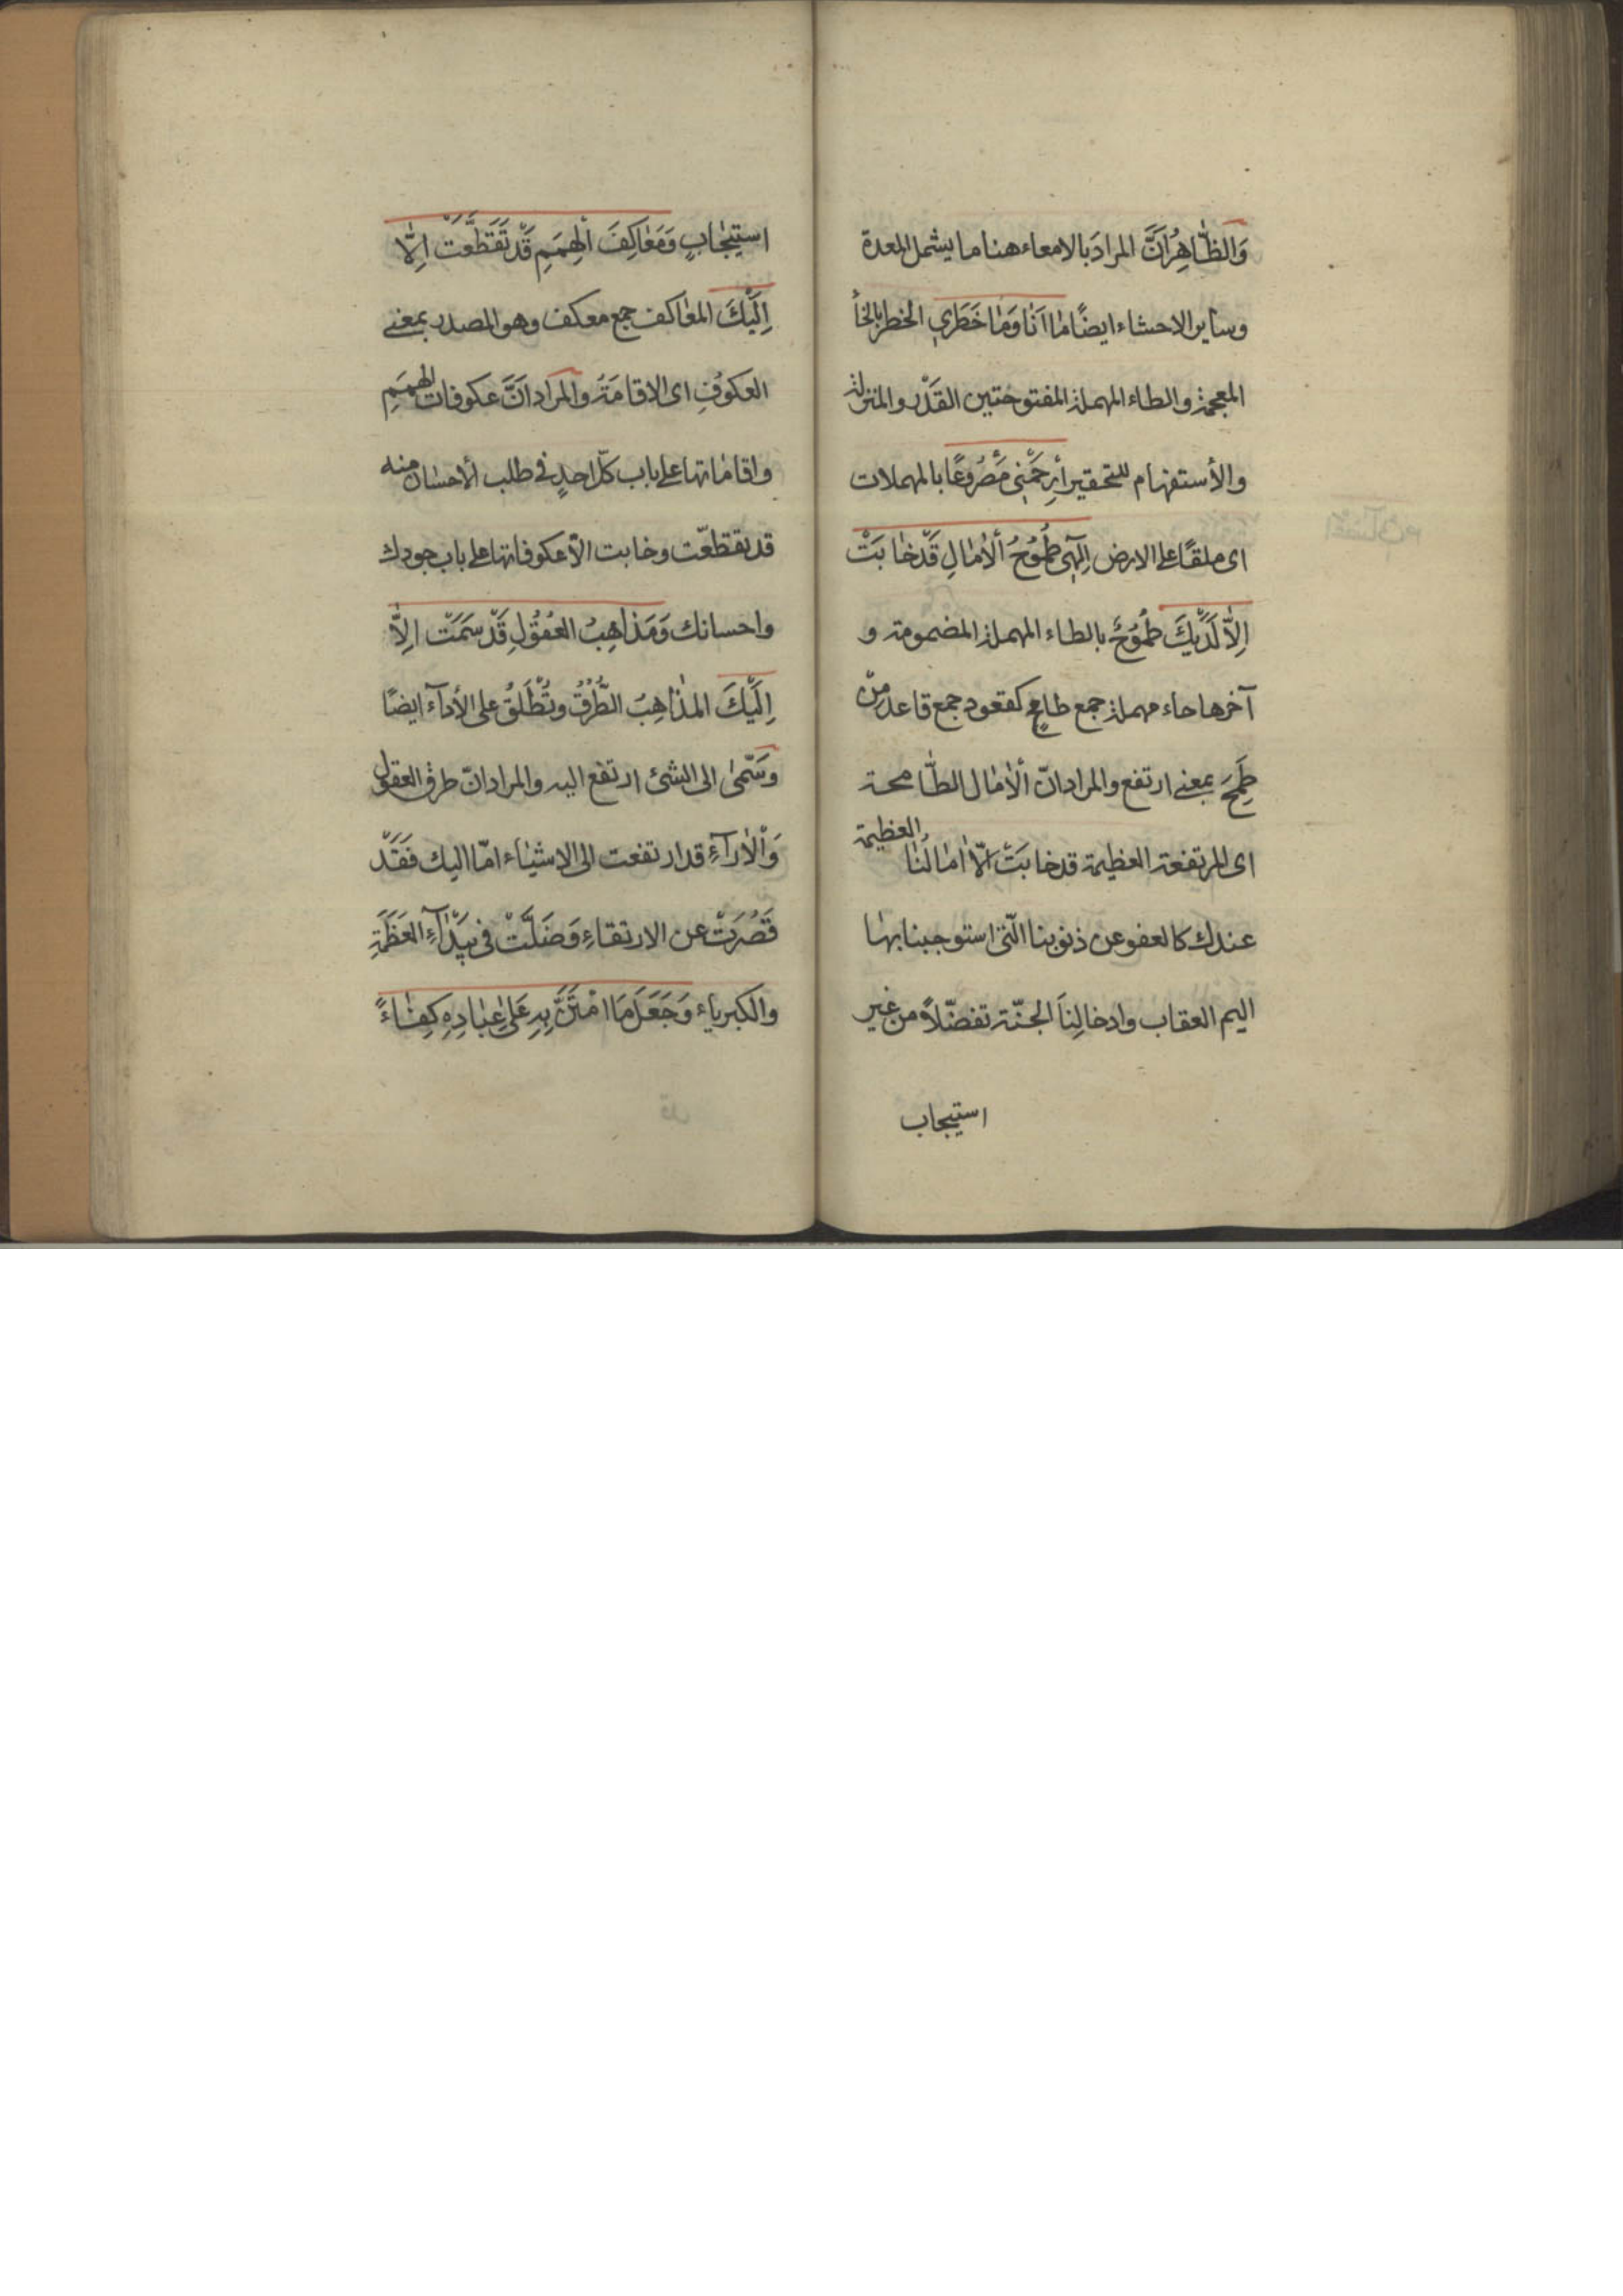 وَالظّاهِرُ اَنَّ المرادَ بالامعاء هنا ما يشمل المعدة
وساير الاحشاء ايضًا مٰا اَنَا وَمٰا خَطَرى الخطر بالخٲ
المعجمة والطاء المهملة المفتوحتين القَدْر والمنزلة
والأستفهام للتحقير أرِحَمْنِى مَصْرُوعًا بالمهملات
اى ملقًا على الارض اِلٰهِى طُمُوحُ ألاٰمٰالِ قَدْ خٰابَتْ
اِلاّ لَدَيْكَ طُمُوحٌ بالطاء المهملة المضمومة و
آخرها حاء مهملة جمع طامح كقعود جمع قاعد من
طَمِحَ بمعنى ارتفع والمراد انّ ألاٰمٰال الطّامحة
اى المرتفعة العظيمة قد خابَتْ اِلاّ اٰمٰالُنٰا العظيمة
عندك كالعفو عن ذنوبنا الّتى استوجبنا بهٰا
اليم العقاب وادخالِنَا الجنّة تفضّلاً من غير
استيجاب
استيجٰابٍ وَمَعٰاكِفَ ألهِمَمِ قَدْ تَقَطَّعَتْ اِلاّٰ
اِلَيْكَ المعٰاكف جمع معكف وهو المصدر بمعنى
العكوُفِ اى الاقامَةُ والمراد اَنَّ عكوفات الهِمَمِ
واقامٰاتها على باب كلّ احدٍ فى طلب ألاحسٰان منه
قد تقطعّت وخابت الاّ عكوفاتها على باب جودك
واحسانك وَمَذاهِبُ العُقُولِ قَدْ سَمَتْ اِلاّٰ
اِلَيْكَ المذٰاهِبُ الطُّرُقُ وتُطْلَقُ على الأدآء ايضًا
وسَمىٰ الى الشئ ارتفع اليه والمراد انّ طرق العقول
وَألاٰراٰءِ قد ارتفعت الى الاشيٰاء امّا اليك فَقَدْ
قَصُرَتْ عن الارتقاءِ وَضَلَّتْ فى بَيْدٰاٰءِ العَظَمَةِ
والكبرياء وَجَعَلَ مَا امْتَنَّ بِهِ عَلىٰ عِبٰادِهِ كِفٰاءً